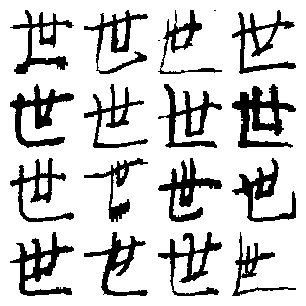 世世世世
世世世世
世世世世
世世世世